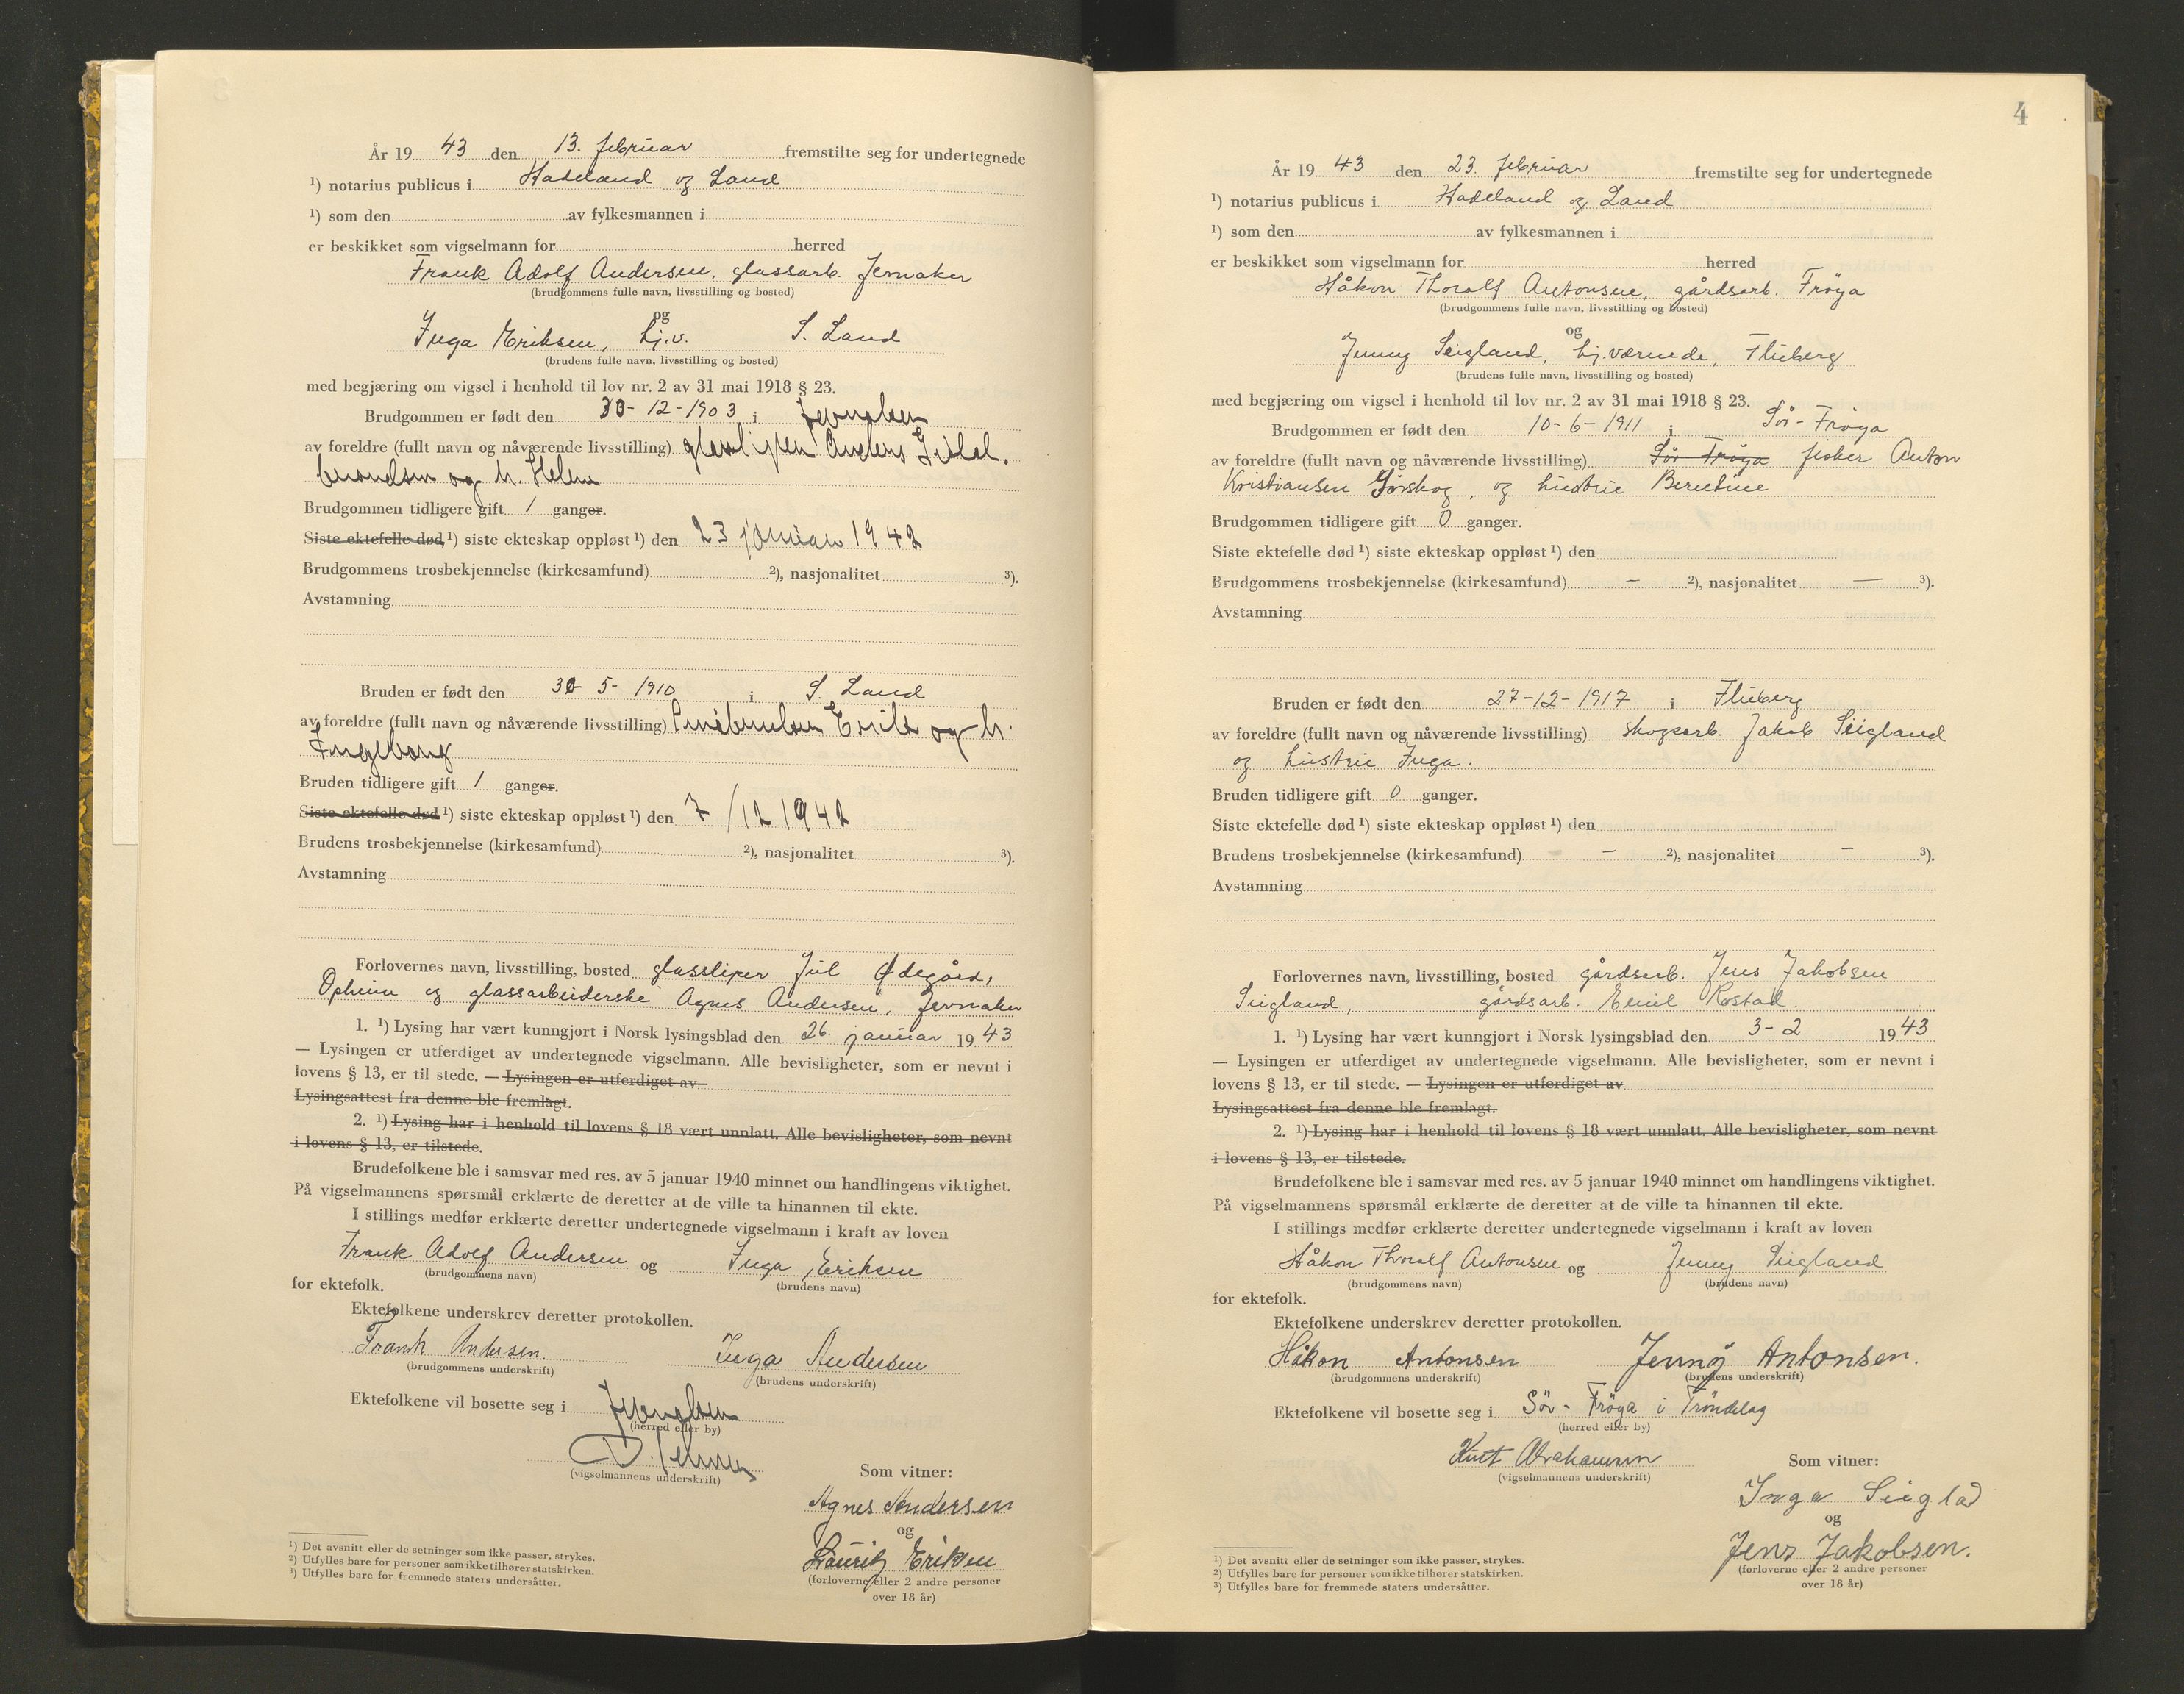 År 19 43 den 13. februar fremstilte seg for undertegnede
¹) notarius publicus i Hadeland og Land
¹) som den av fylkesmannen i
er beskikket som vigselmann for herred
Frank Adolf Andersen, glassarb. Jevnaker
(brudgommens fulle navn, livsstilling og bosted)
og
Inga Eriksen, hj.v. S. Land
(brudens fulle navn, livsstilling og bosted)
med begjæring om vigsel i henhold til lov nr. 2 av 31 mai 1918 § 23.
Brudgommen er født den 30-12-1903 i Jevnaker
av foreldre (fullt navn og nåværende livsstilling) glassliper Anders Gulbrandsen og h. Helene
Brudgommen tidligere gift 1 ganger.
Siste ektefelle død ¹) siste ekteskap oppløst ¹) den 23 januar 1942
Brudgommens trosbekjennelse (kirkesamfund) ²), nasjonalitet ³).
Avstamning
Bruden er født den 30-5-1910 i S. Land
av foreldre (fullt navn og nåværende livsstilling) Erik og h.
Ingeborg
Bruden tidligere gift 1 ganger.
Siste ektefelle død ¹) siste ekteskap oppløst ¹) den 7/12 1942
Brudens trosbekjennelse (kirkesamfund) ²), nasjonalitet ³).
Avstamning
Forlovernes navn, livsstilling, bosted glassliper Jul Ødegård,
Opheim og glassarbeiderske Agnes Andersen, Jevnaker
1. ¹) Lysing har vært kunngjort i Norsk lysingsblad den 26. januar 19 43
— Lysingen er utferdiget av undertegnede vigselmann. Alle bevisligheter, som er nevnt i
lovens § 13, er til stede. — Lysingen er utferdiget av
Lysingsattest fra denne ble fremlagt.
2. ¹) Lysing har i henhold til lovens § 18 vært unnlatt. Alle bevisligheter, som nevnt
i lovens § 13, er tilstede.
Brudefolkene ble i samsvar med res. av 5 januar 1940 minnet om handlingens viktighet.
På vigselmannens spørsmål erklærte de deretter at de ville ta hinannen til ekte.
I stillings medfør erklærte deretter undertegnede vigselmann i kraft av loven
Frank Adolf Andersen og Inga Eriksen
(brudgommens navn) (brudens navn)
for ektefolk.
Ektefolkene underskrev deretter protokollen.
Frank Andersen. Inga Andersen
(brudgommens underskrift) (brudens underskrift)
Ektefolkene vil bosette seg i Jevnaker
(herred eller by)
(vigselmannens underskrift)
Som vitner:
Agnes Andersen
og
Lauritz Eriksen
(forloverne eller 2 andre personer
over 18 år)
¹) Det avsnitt eller de setninger som ikke passer, strykes.
²) Utfylles bare for personer som ikke tilhører statskirken.
³) Utfylles bare for fremmede staters undersåtter.
4
År 19 43 den 23. februar fremstilte seg for undertegnede
¹) notarius publicus i Hadeland og Land
¹) som den av fylkesmannen i
er beskikket som vigselmann for herred
Håkon Thoralf Antonsen, gårdsarb. Frøya
(brudgommens fulle navn, livsstilling og bosted)
og
Jenny Seigland, hj.værende, Fluberg
(brudens fulle navn, livsstilling og bosted)
med begjæring om vigsel i henhold til lov nr. 2 av 31 mai 1918 § 23.
Brudgommen er født den 10-6-1911 i Sör-Fröya
av foreldre (fullt navn og nåværende livsstilling) Sör Fröya fisker Anton
Kristiansen Gørskog, og hustrue Berntine
Brudgommen tidligere gift 0 ganger.
Siste ektefelle død ¹) siste ekteskap oppløst ¹) den
Brudgommens trosbekjennelse (kirkesamfund) – ²), nasjonalitet — ³).
Avstamning
Bruden er født den 27-12-1917 i Fluberg
av foreldre (fullt navn og nåværende livsstilling) skogsarb. Jakob Seigland
og hustrue Inga.
Bruden tidligere gift 0 ganger.
Siste ektefelle død ¹) siste ekteskap oppløst ¹) den
Brudens trosbekjennelse (kirkesamfund) – – ²), nasjonalitet – ³).
Avstamning
Forlovernes navn, livsstilling, bosted gårdsarb. Jens Jakobsen
Seigland, gårdsarb. Emil Rostad.
1. ¹) Lysing har vært kunngjort i Norsk lysingsblad den 3-2 19 43
— Lysingen er utferdiget av undertegnede vigselmann. Alle bevisligheter, som er nevnt i
lovens § 13, er til stede. — Lysingen er utferdiget av
Lysingsattest fra denne ble fremlagt.
2. ¹) Lysing har i henhold til lovens § 18 vært unnlatt. Alle bevisligheter, som nevnt
i lovens § 13, er tilstede.
Brudefolkene ble i samsvar med res. av 5 januar 1940 minnet om handlingens viktighet.
På vigselmannens spørsmål erklærte de deretter at de ville ta hinannen til ekte.
I stillings medfør erklærte deretter undertegnede vigselmann i kraft av loven
Håkon Thoralf Antonsen og Jenny Seigland
(brudgommens navn) (brudens navn)
for ektefolk.
Ektefolkene underskrev deretter protokollen.
Håkon Antonsen Jenny Antonsen.
(brudgommens underskrift) (brudens underskrift)
Ektefolkene vil bosette seg i Sör-Fröya i Tröndelag
(herred eller by)
Knut Abrahamsen
(vigselmannens underskrift)
Som vitner:
Inga Seiglad
og
Jens Jakobsen.
(forloverne eller 2 andre personer
over 18 år)
¹) Det avsnitt eller de setninger som ikke passer, strykes.
²) Utfylles bare for personer som ikke tilhører statskirken.
³) Utfylles bare for fremmede staters undersåtter.